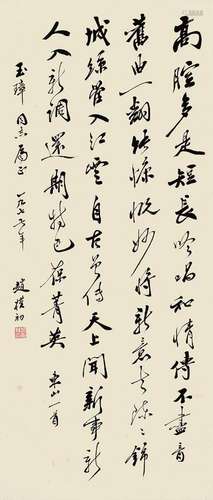 高腔多是短長吟唱和情傳不盡音
舊曲一翻慷慨妙將新意去陳陳錦
城絲管入江雲自古曾傳天上聞新事新
人入新調還期特色葆菁英 東山一首
玉璋同志屬正 一九七年 趙樸初